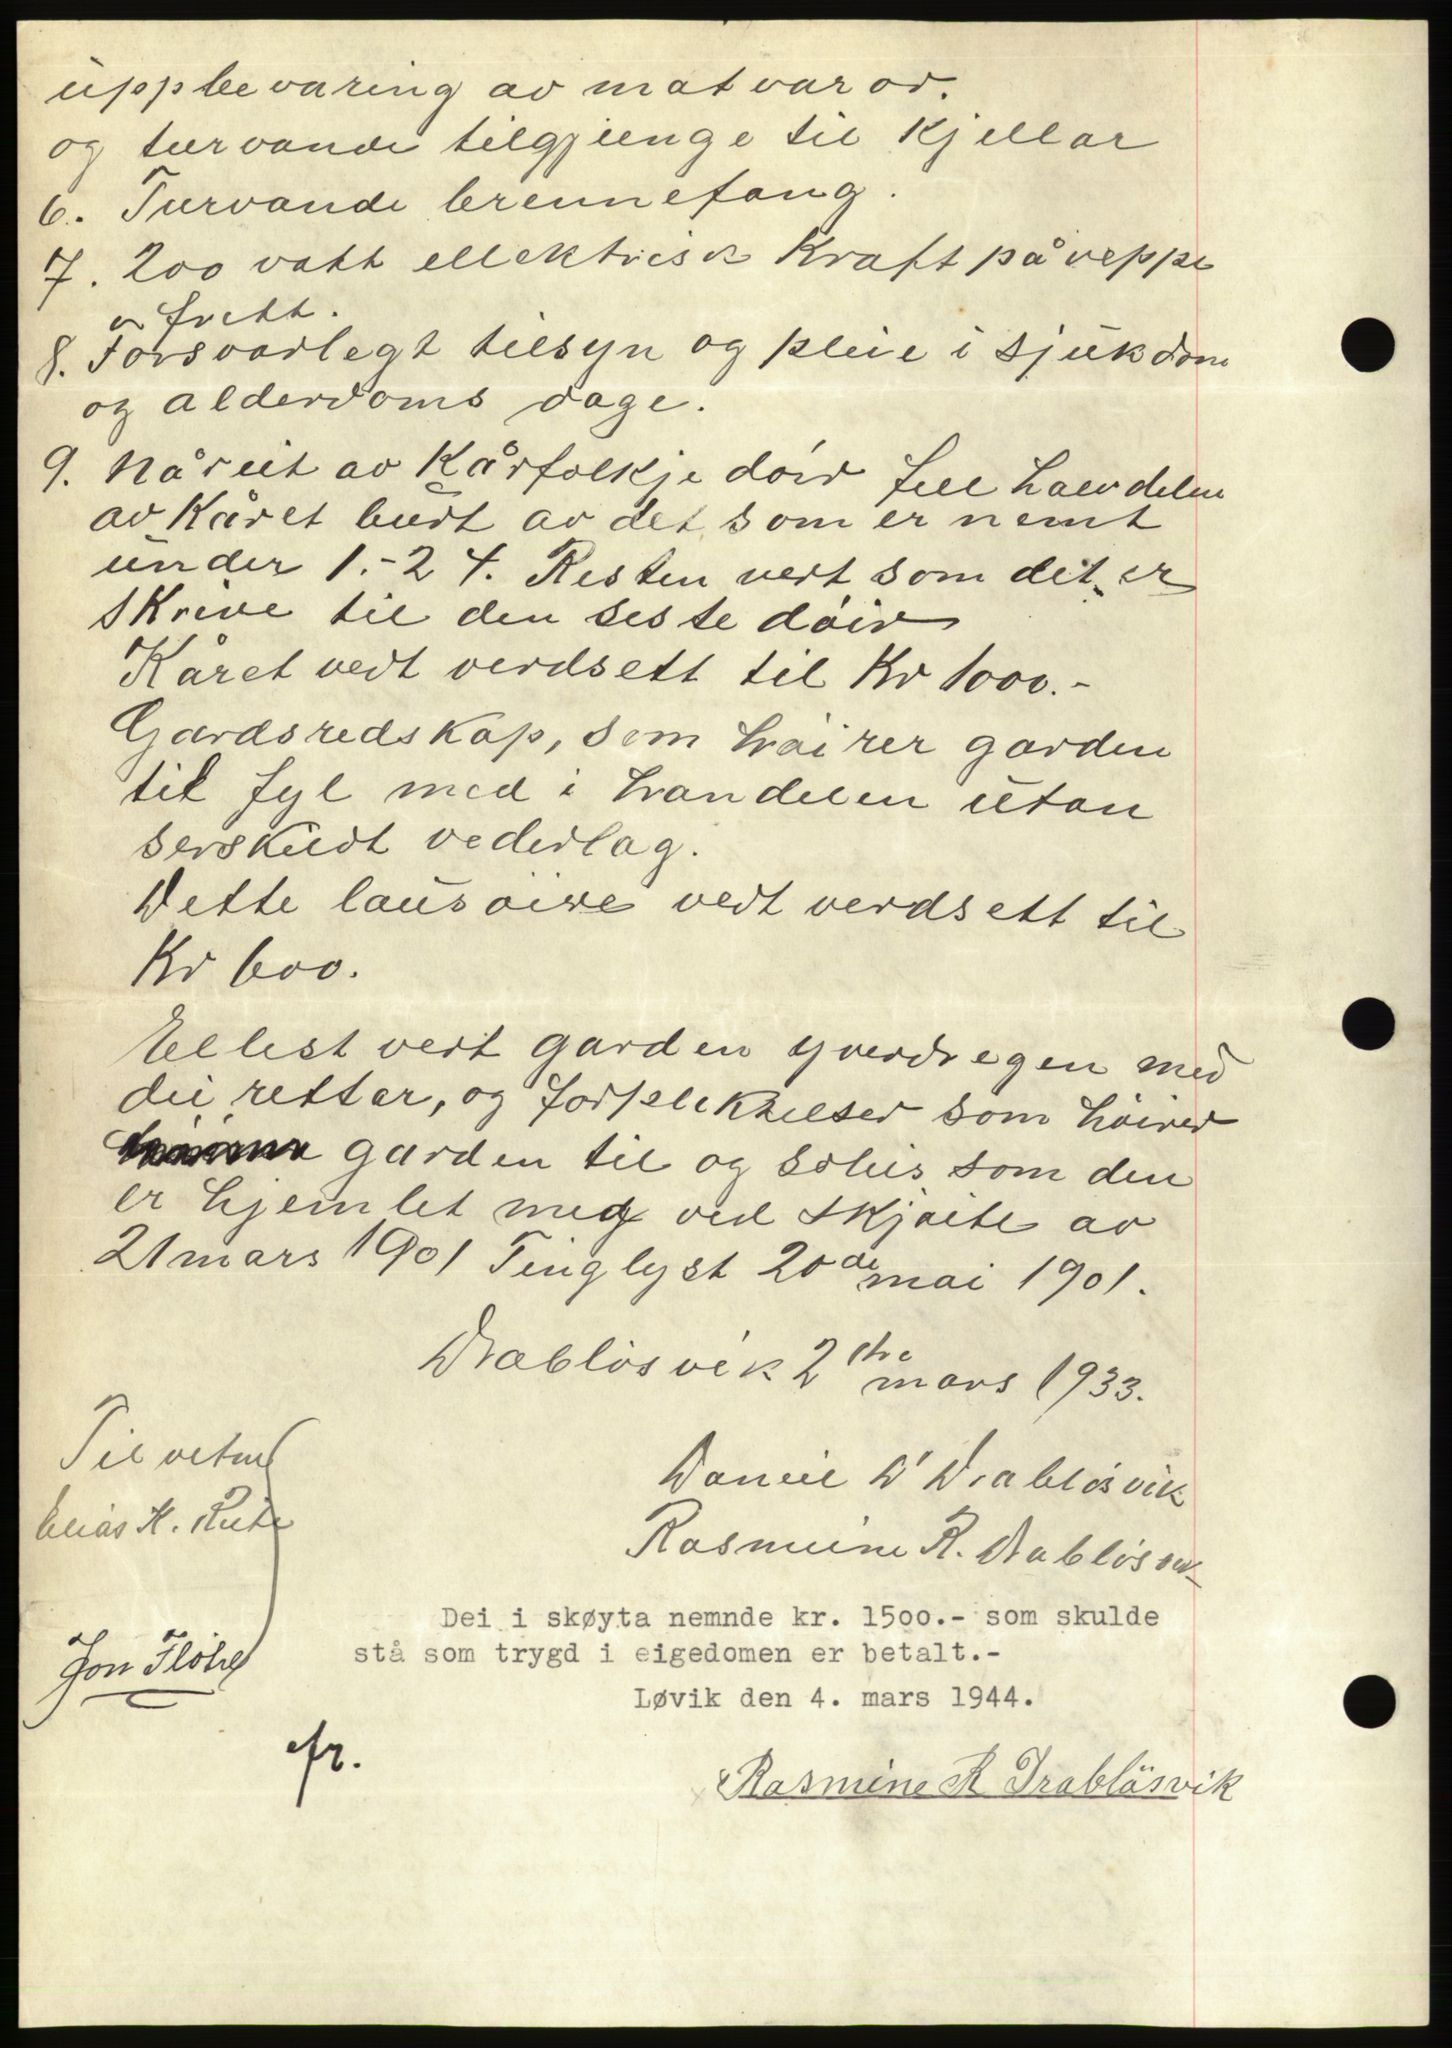 uppbevaring av matvaror.
og turvande tilgjenge til Kjellar
6. Turvande brennefang.
7. 200 vatt ellektrisk Kraft på veppe
fritt.
8. Forsvarlegt tilsyn og pleie i sjukdom
og alderdoms dage.
9. Når eit av Kårfolkje döir fell halvdelen
av Kåret burt av det som er nemt
under 1.-2 4. Resten vert som det er
skrive til den seste döir
Kåret vert verdsett til Kr 1000.-
Gardsredskap, som höirer garden
til fyl med i handelen utan
serskildt vederlag.
Dette lausöire vert verdsett til
Kr 600.
Ellest vert garden yverdregen med
dei rettar, og forpliktelser som höirer
garden til og soleis som den
er hjemlet meg ved skjöite av
21 mars 1901 Tinglyst 20de mai 1901.
Drablösvik 2dre mars 1933.
Til vetne
Daniel D Drablösvik
Elias K. Rite
Rasmine R. Drablösvik
Dei i skøyta nemnde kr. 1500.- som skulde
stå som trygd i eigedomen er betalt.-
Jon Flötre
Løvik den 4. mars 1944.
fr.
Rasmine R Drablösvik